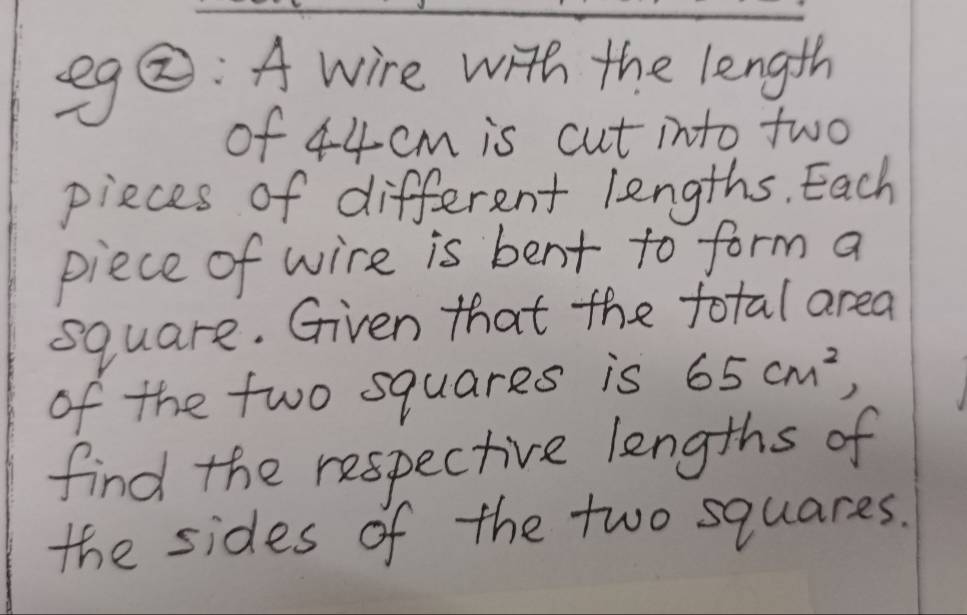 eg ②: A wire with the length
of 44 cm is cut into two
pieces of different lengths. Each
piece of wire is bent to form a
square. Given that the total area
of the two squares is 65 cm²,
find the respective lengths of
the sides of the two squares.